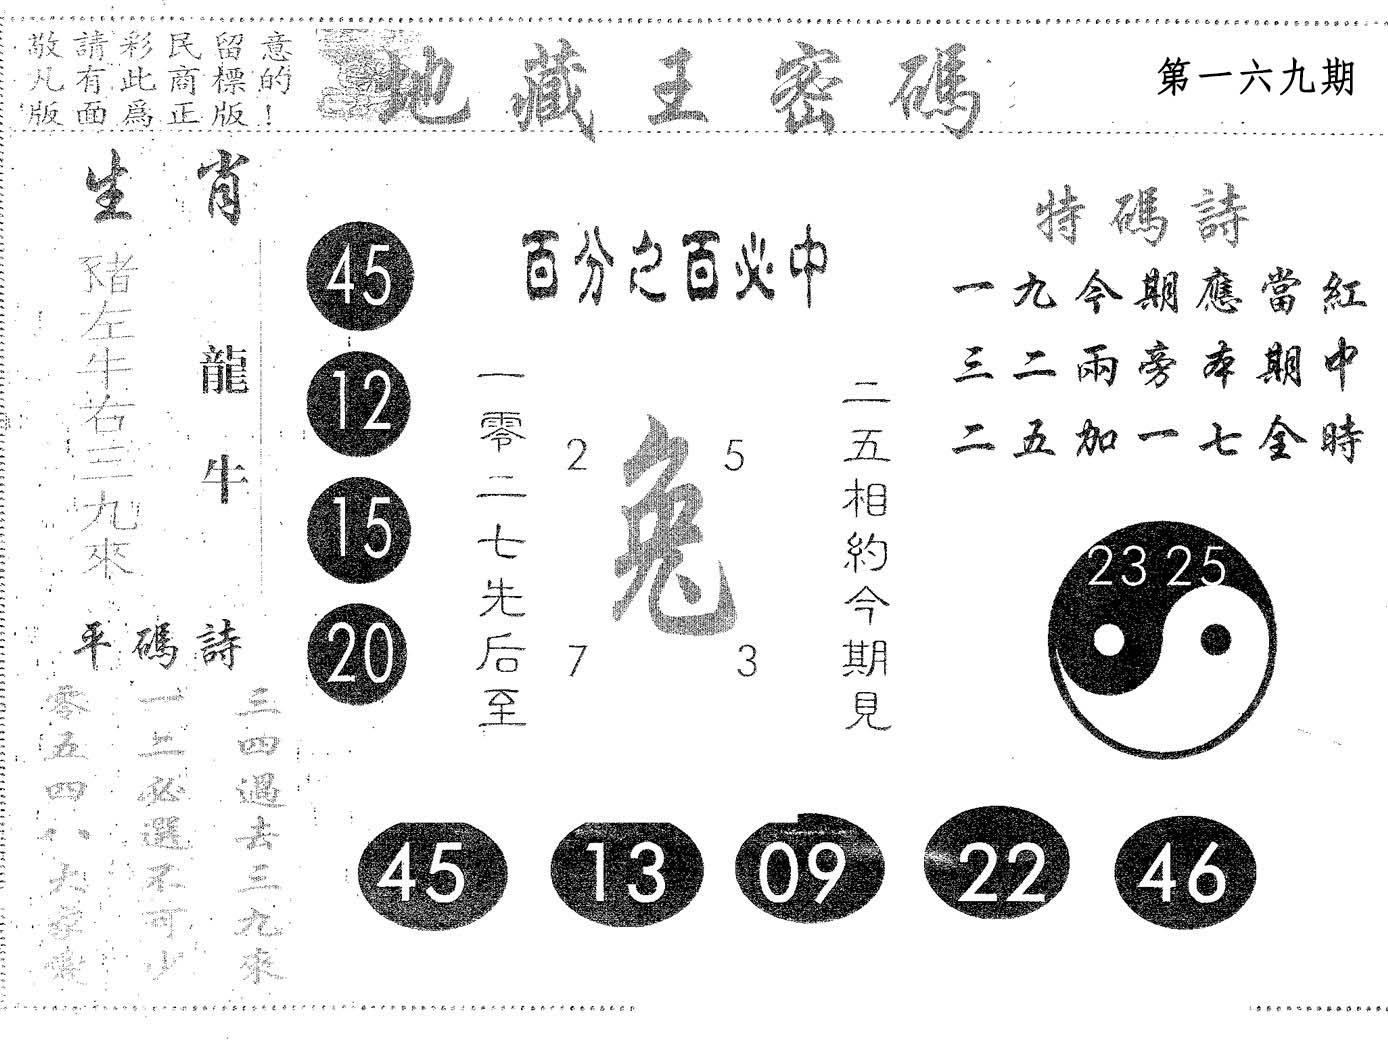 敬請彩民留意
凡有此商標的
版面爲正版!
地藏王密碼
第一六九期
生肖
豬左牛右三九來
龍牛
45
12
15
20
百分之百必中
一零二七先后至
2 5
兔
7 3
二五相約今期見
特碼詩
一九今期應當紅
三二兩旁本期中
二五加一七全時
23 25
平碼詩
零五四八大
一二必選不可少
三四過去三九來
45 13 09 22 46